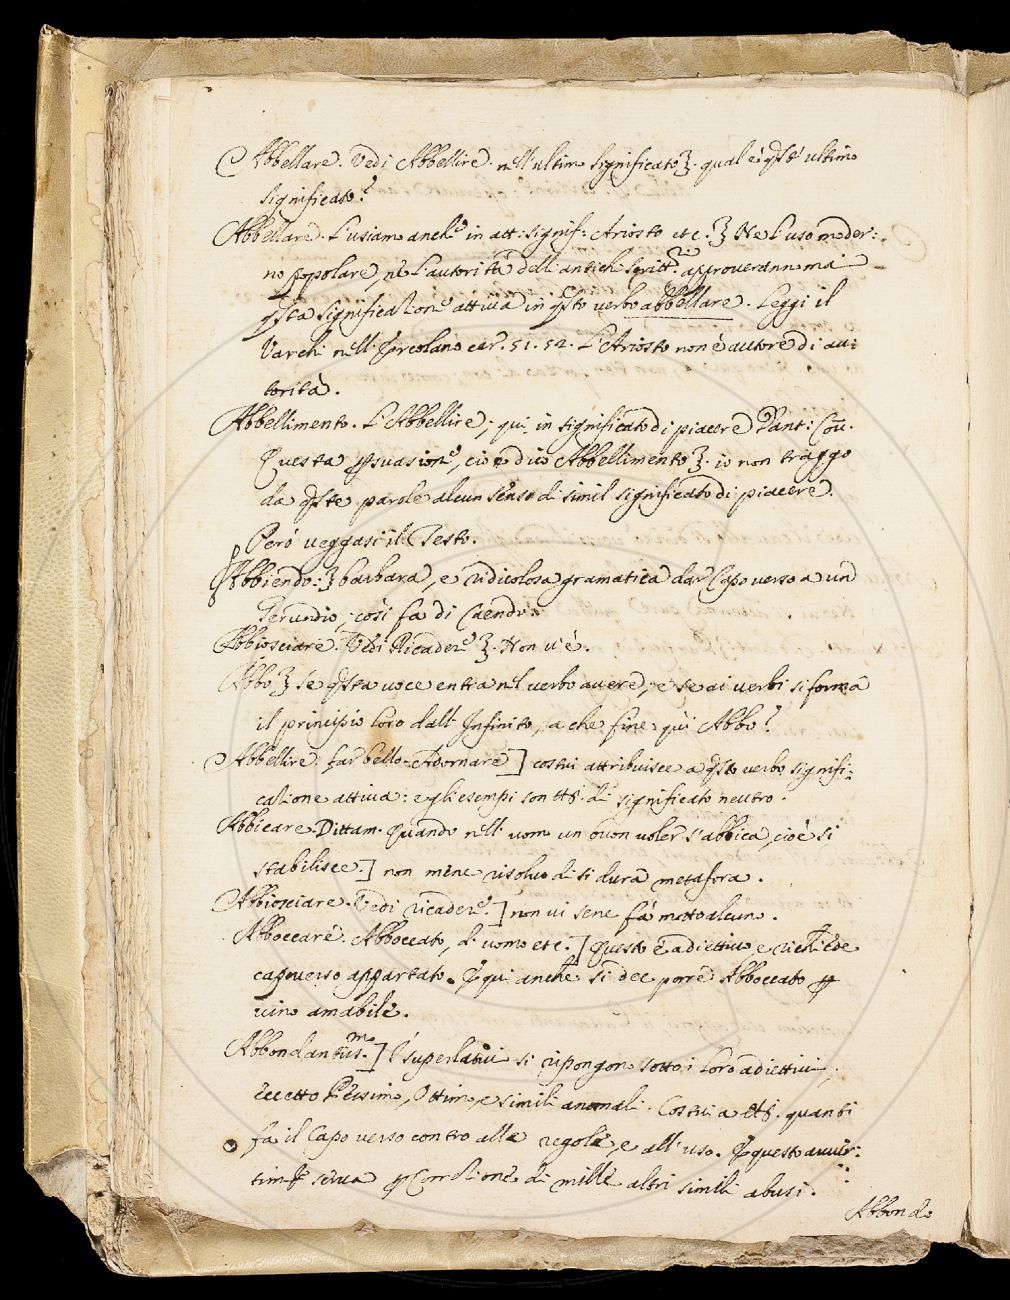 Abbellare. Vedi Abbellire. nell'ultimo significato}. qual è q̃sto ultimo
significato?
Abbellare. L'usiamo anche in att. signif: Ariosto etc.} Nè l'uso moder:
no popolare, nè l'autorità dell'antichi scritt.ri approveranno mai
q̃sta significazione attiva in q̃sto verbo abbellare. Leggi il
Varchi nell'Ercolano car. 51. 52. L'Ariosto non è autore di au:
torità.
Abbellimento. L'Abbellire; qui in significato di piacere Dant: Cōv.
Questa p̱suasione, cioè dico Abbellimento}. io non traggo
da q̃ste parole alcun senso di simil significato di piacere.
Però veggasi il Testo.
Abbiendo:} barbara, e ridicolosa gramatica dar Capo verso a un
Gerundio, così fa di Caendo.
Abbiosciare. Vedi Ricadere}. Non v'è.
Abbo} se q̃sta voce entra nel verbo avere, e se ai verbi si forma
il principio loro dall'Infinito, a che fine quì Abbo?
Abbellire. far bello. Adornare] costui attribuisce a q̃sto verbo signifi:
cazione attiva: e gli esempi son di significato neutro.
Abbicare. Dittam. Quando nell'uomo un buon voler s'abbica, cioè si
stabilisce.] non mene risolvo di sì dura metafora.
Abbiosciare. Vedi ricadere.] non vi sene fà motto alcuno.
Abboccare. Abboccato, d'uomo etc.] Questo è adiettivo e richiede
capoverso appartato. E qui anche si dee porre Abboccato p̱
vino amabile.
Abbondantiss.mo] I superlativi si ripongon sotto i loro adiettivi,
eccetto Pessimo, Ottimo, e simili anomali. Costui a quanti
fa il Capo verso contro alle regole, e all'uso. E questo avver:
tim.to serva p̱ Correzione di mille altri simili abusi.
Abbondo